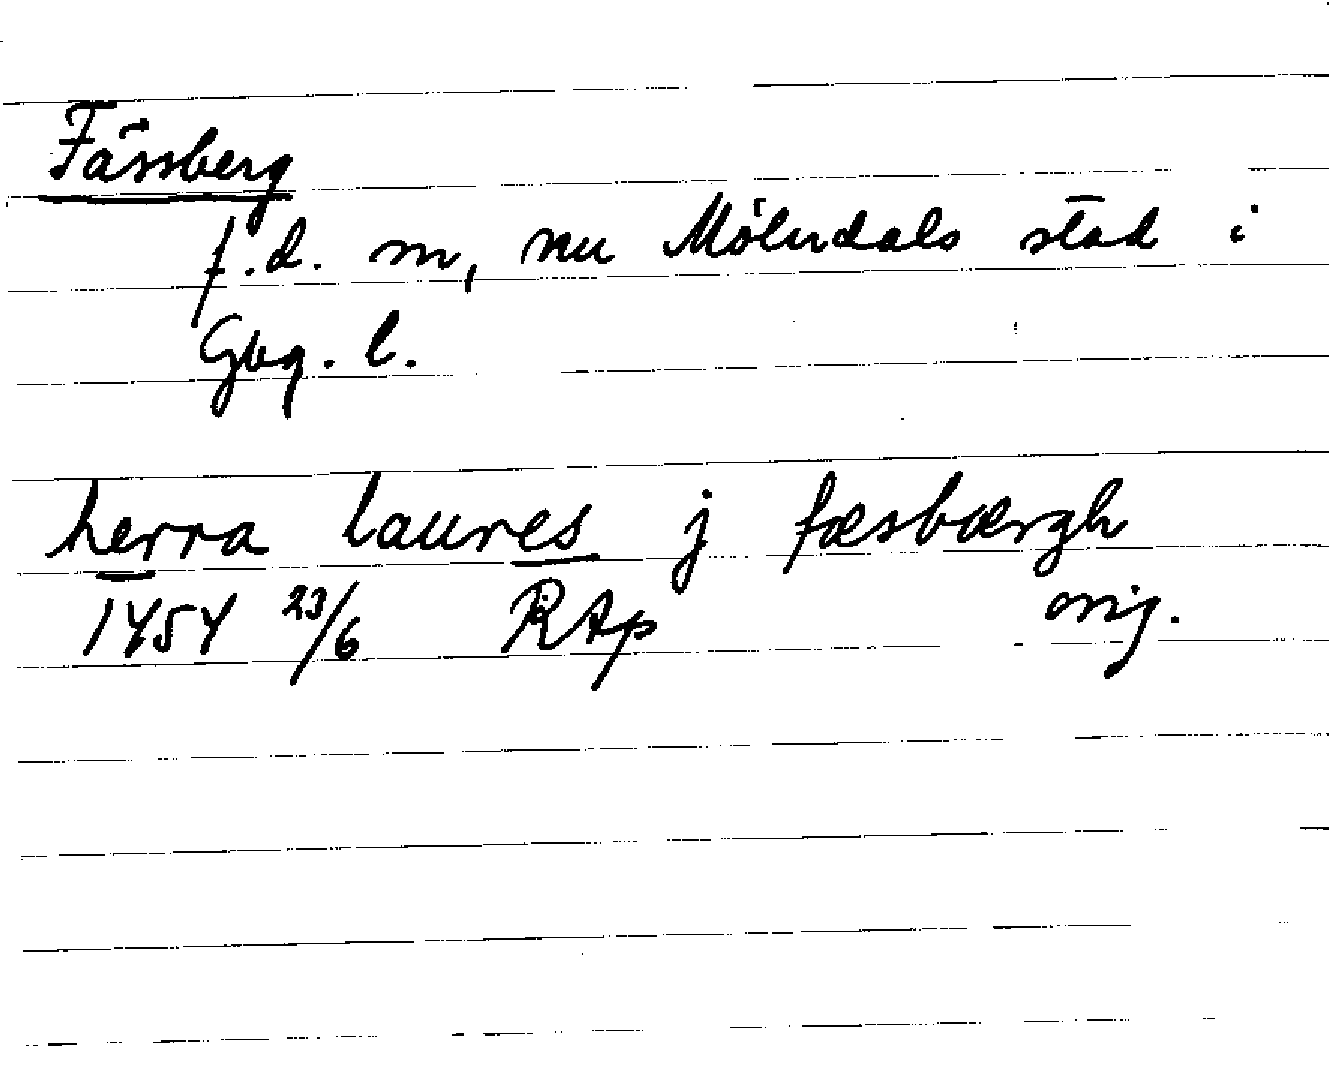 Fässberg
f.d. sn, nu Mölndals stad i
Gbg. l.
herra laures j fæsbærgh
1454 23/6 RAp orig.